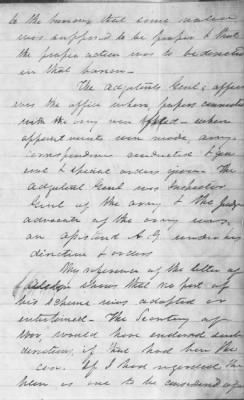 to the bureau that some action
was supposed to be proper & that
the proper action was to be directed
in that bureau.
The Adjutant Genl's office
was the office where papers connected
with the army were filed - where
appointments were made, army
correspondence conducted & gen
eral & special orders given. The
Adjutant Genl was Inspector
Genl of the army & the Judge
advocate of the army was
an Assistant A. G. under his
direction & orders
My reference of the letter of
shows that no part of
his scheme was adopted or
entertained - The Secretary of
War, would have endorsed such
direction, if that had been the
case. If I had regarded the
been as one to be considered of